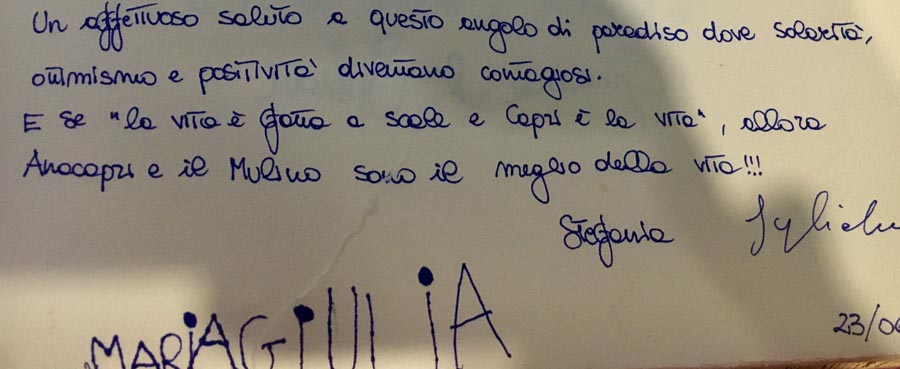 Un affettuoso saluto a questo angolo di paradiso dove solarità,
ottimismo e positività diventano contagiosi.
E se "la vita è fatta a scale e Capri è la vita", allora
Anacapri e il Mulino sono il meglio della vita!!!
Stefania
MARIAGIULIA
23/0